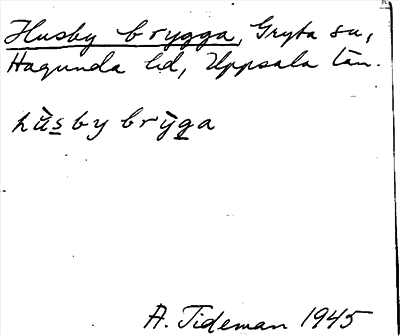 Husby brygga, Gryta sn,
Hagunda hd, Uppsala län.
hùsby brỳga
A. Tideman 1945